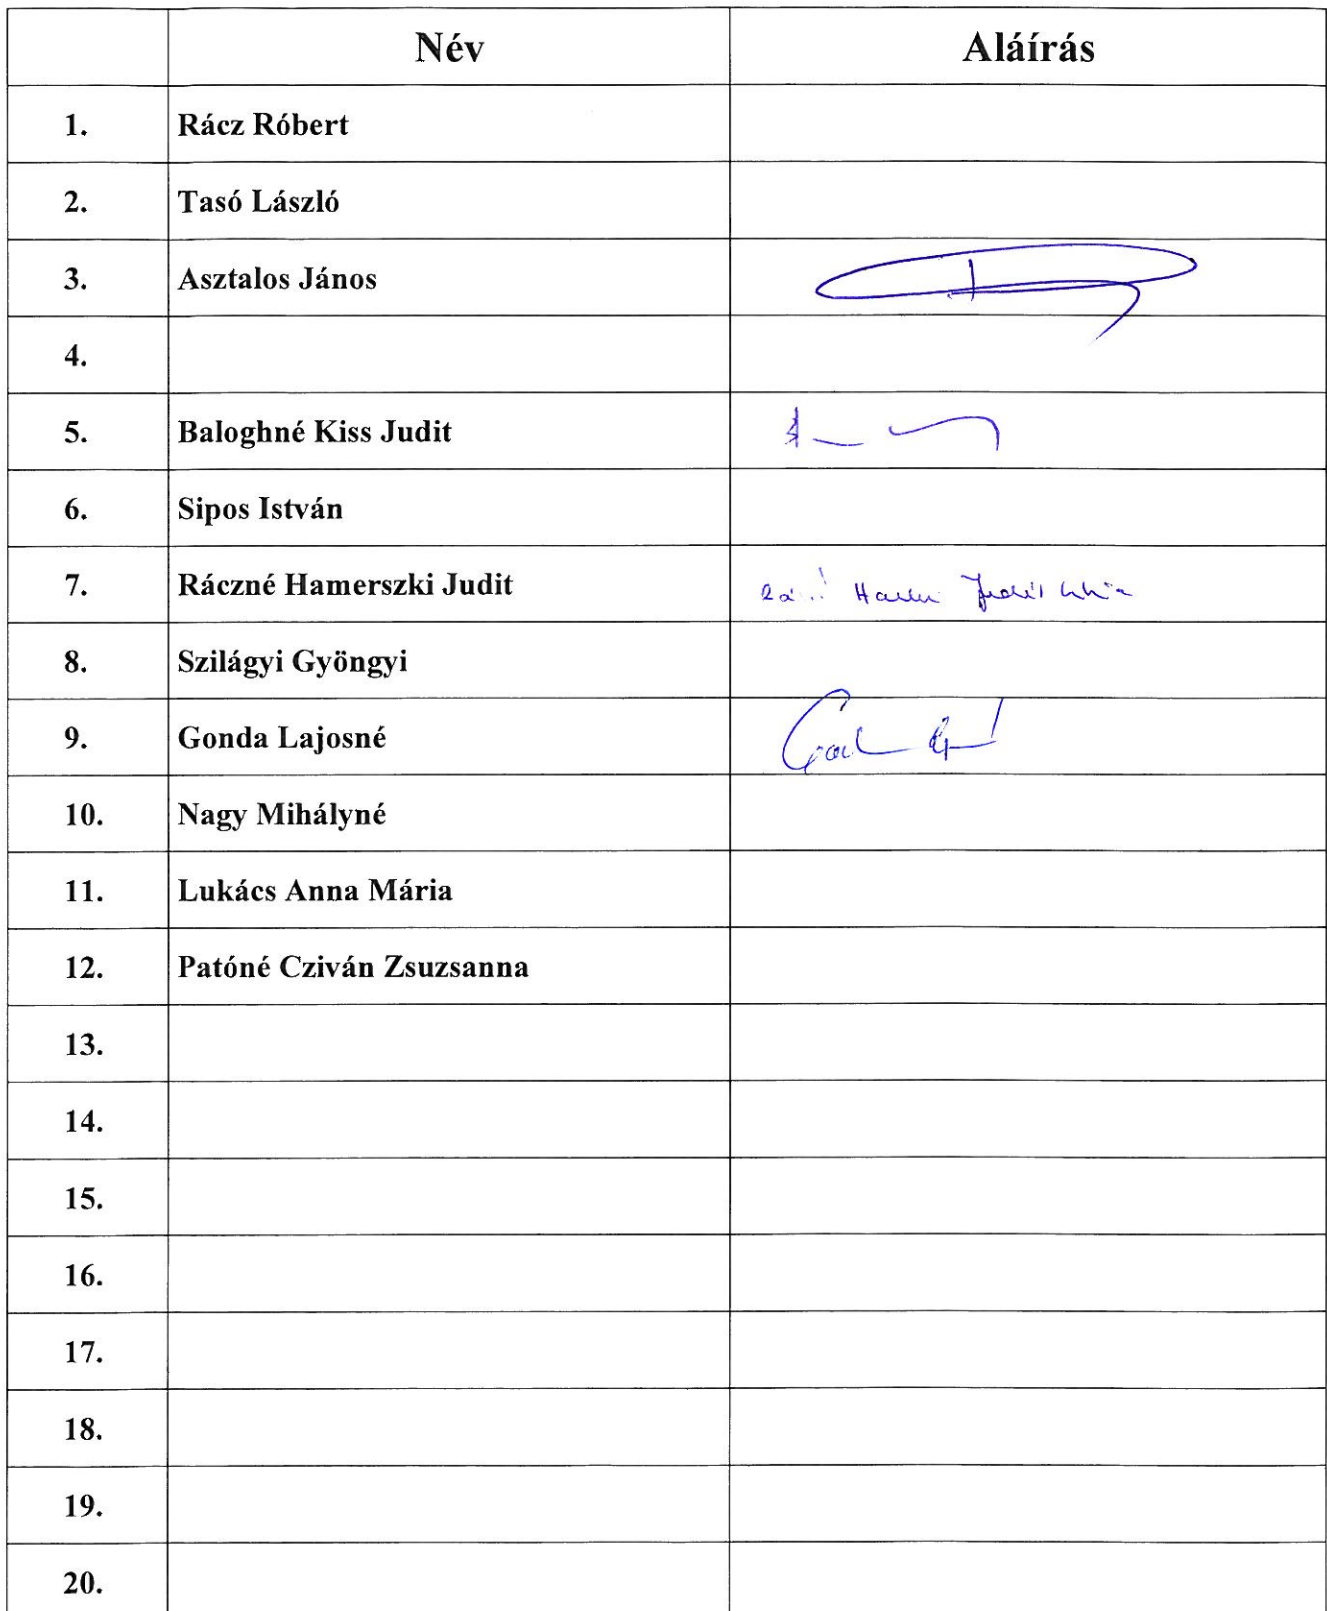 Név Aláírás
1. Rácz Róbert
2. Tasó László
3. Asztalos János
4.
5. Baloghné Kiss Judit
6. Sipos István
7. Ráczné Hamerszki Judit
8. Szilágyi Gyöngyi
9. Gonda Lajosné
10. Nagy Mihályné
11. Lukács Anna Mária
12. Patóné Cziván Zsuzsanna
13.
14.
15.
16.
17.
18.
19.
20.